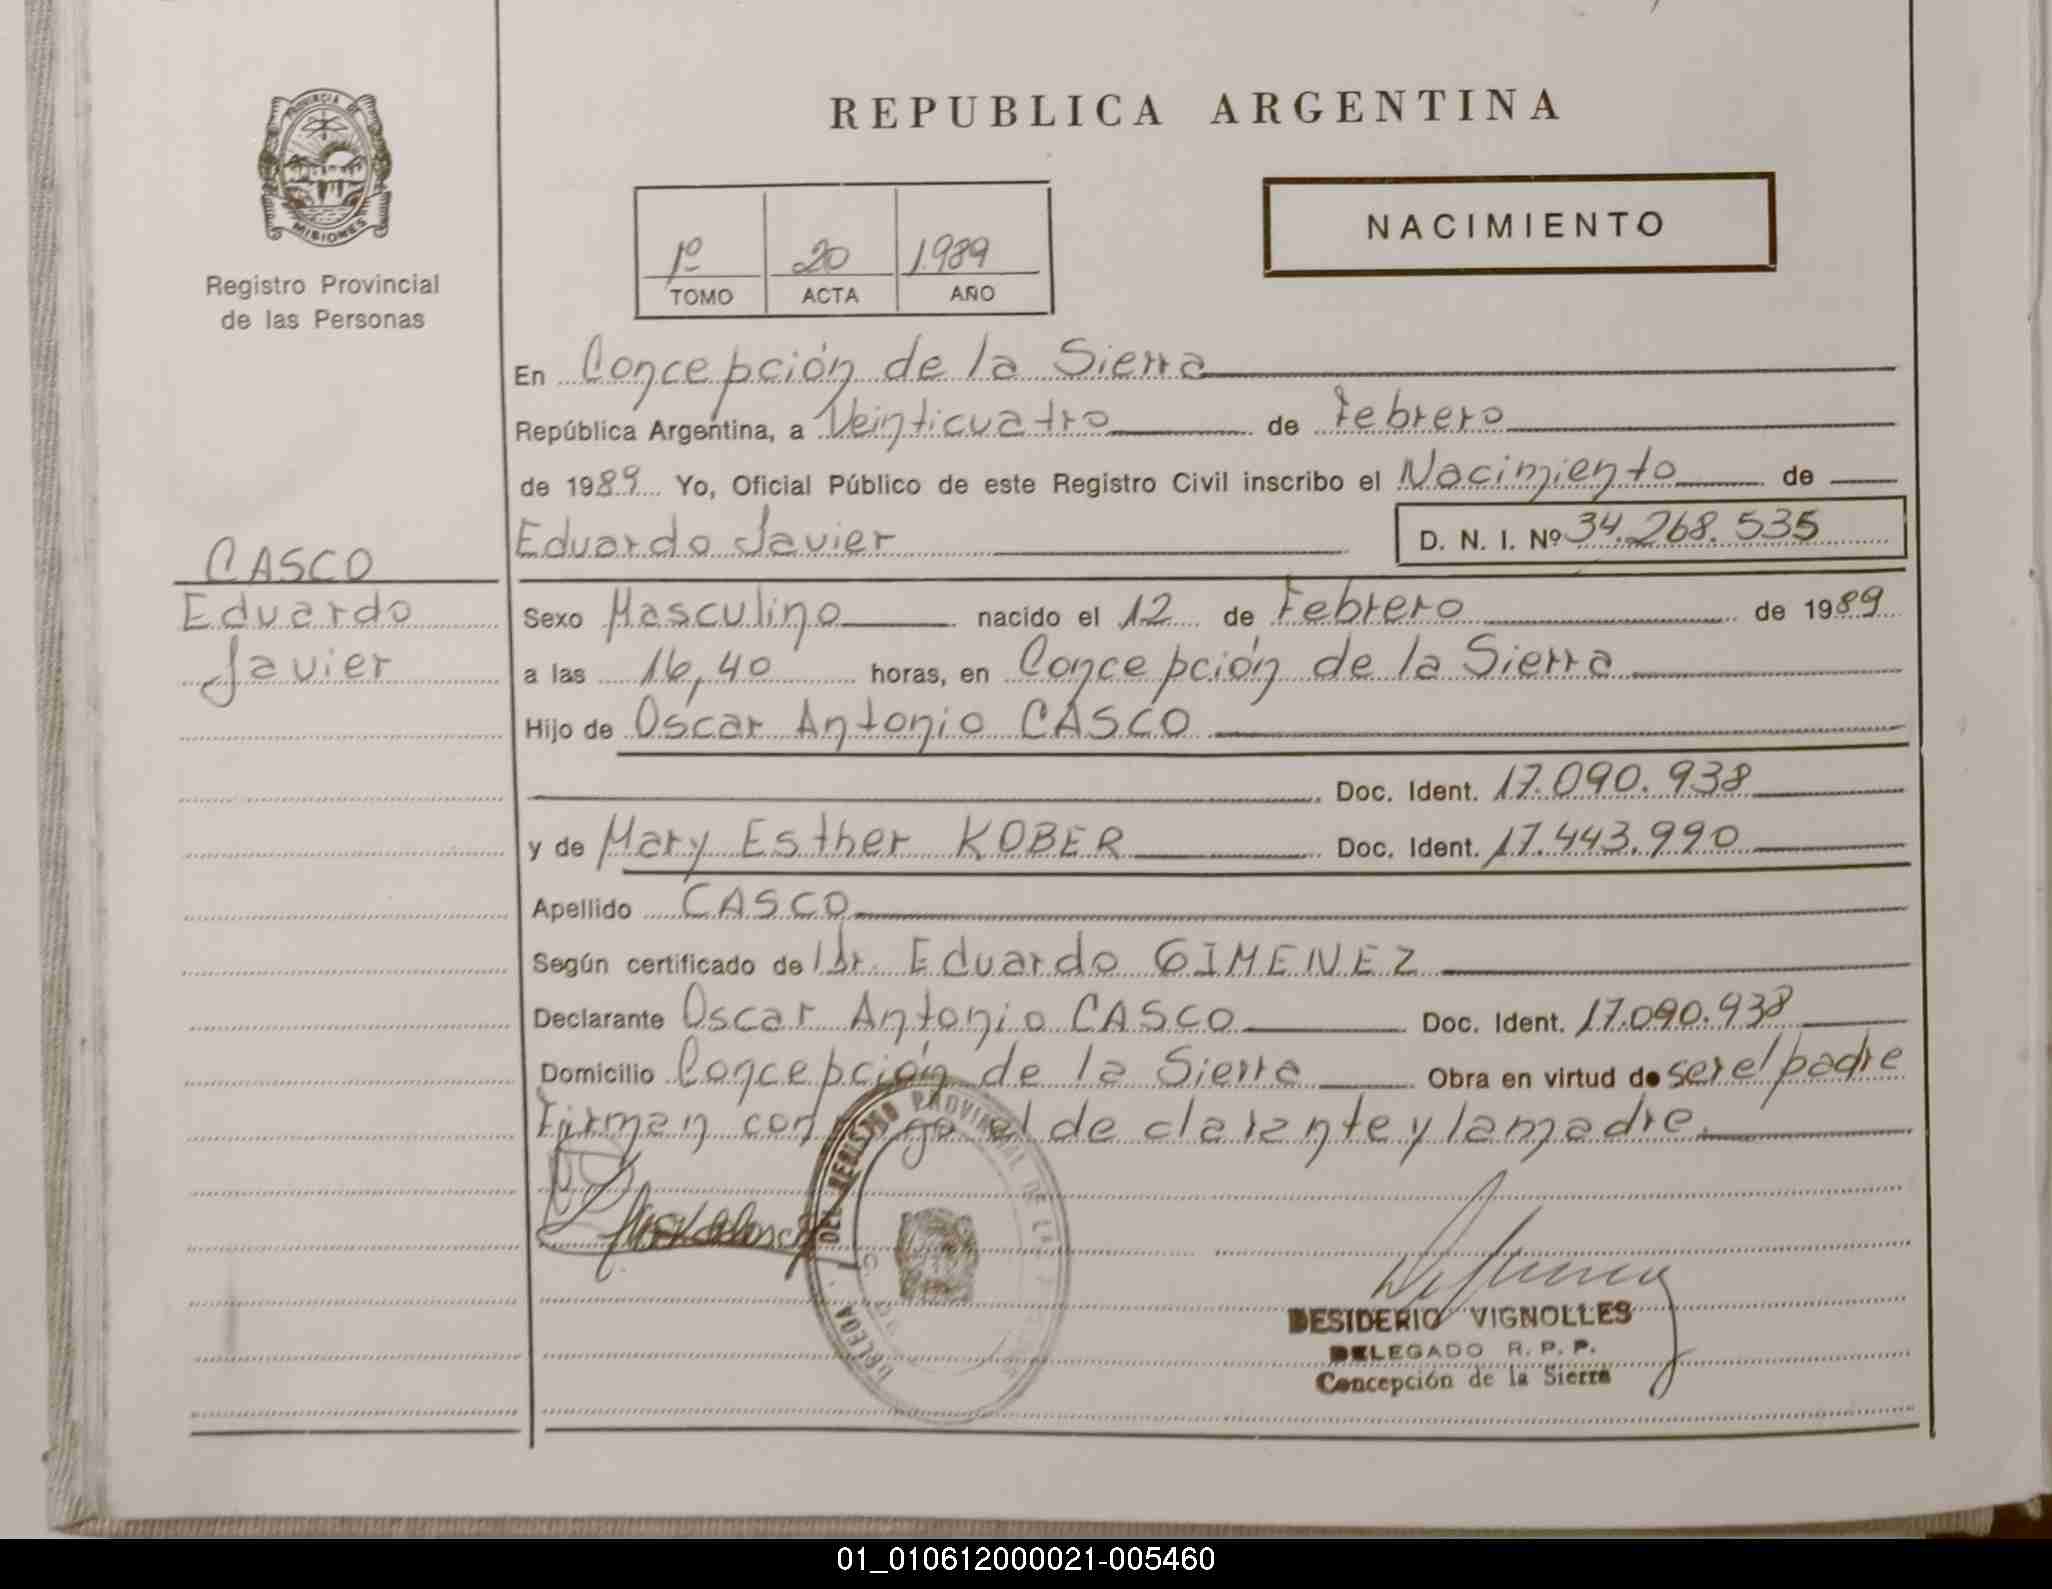 PROVINCIA DE
MISIONES
Registro Provincial
de las Personas
REPUBLICA ARGENTINA
NACIMIENTO
1º 20 1.989
TOMO ACTA AÑO
En Concepción de la Sierra
República Argentina, a Veinticuatro de Febrero
de 1989 Yo, Oficial Público de este Registro Civil inscribo el Nacimiento de
Eduardo Javier D. N. I. Nº 34.268.535
CASCO
Eduardo
Javier
Sexo Masculino nacido el 12 de Febrero de 1989
a las 16,40 horas, en Concepción de la Sierra
Hijo de Oscar Antonio CASCO
Doc. Ident. 17.090.938
y de Mary Esther KOBER Doc. Ident. 17.443.990
Apellido CASCO
Según certificado de Dr. Eduardo GIMENEZ
Declarante Oscar Antonio CASCO Doc. Ident. 17.090.938
Domicilio Concepción de la Sierra Obra en virtud de ser el padre
Firman conmigo el declarante y la madre.
DEL REGISTRO PROVINCIAL DE LAS
DESIDERIO VIGNOLLES
DELEGADO R. P. P.
Concepción de la Sierra
01_010612000021-005460